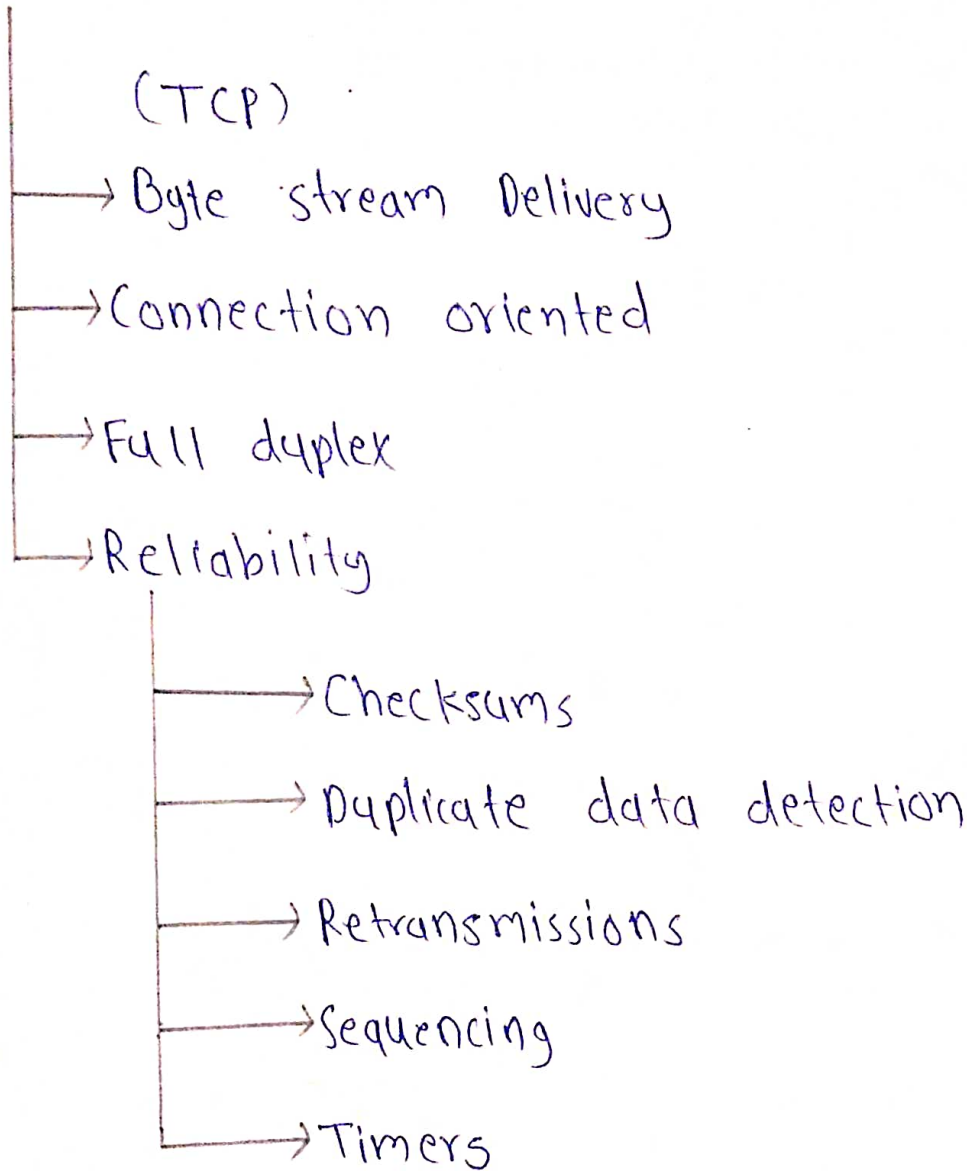 (TCP)
Byte stream Delivery
Connection oriented
Full duplex
Reliability
Checksums
Duplicate data detection
Retransmissions
Sequencing
Timers